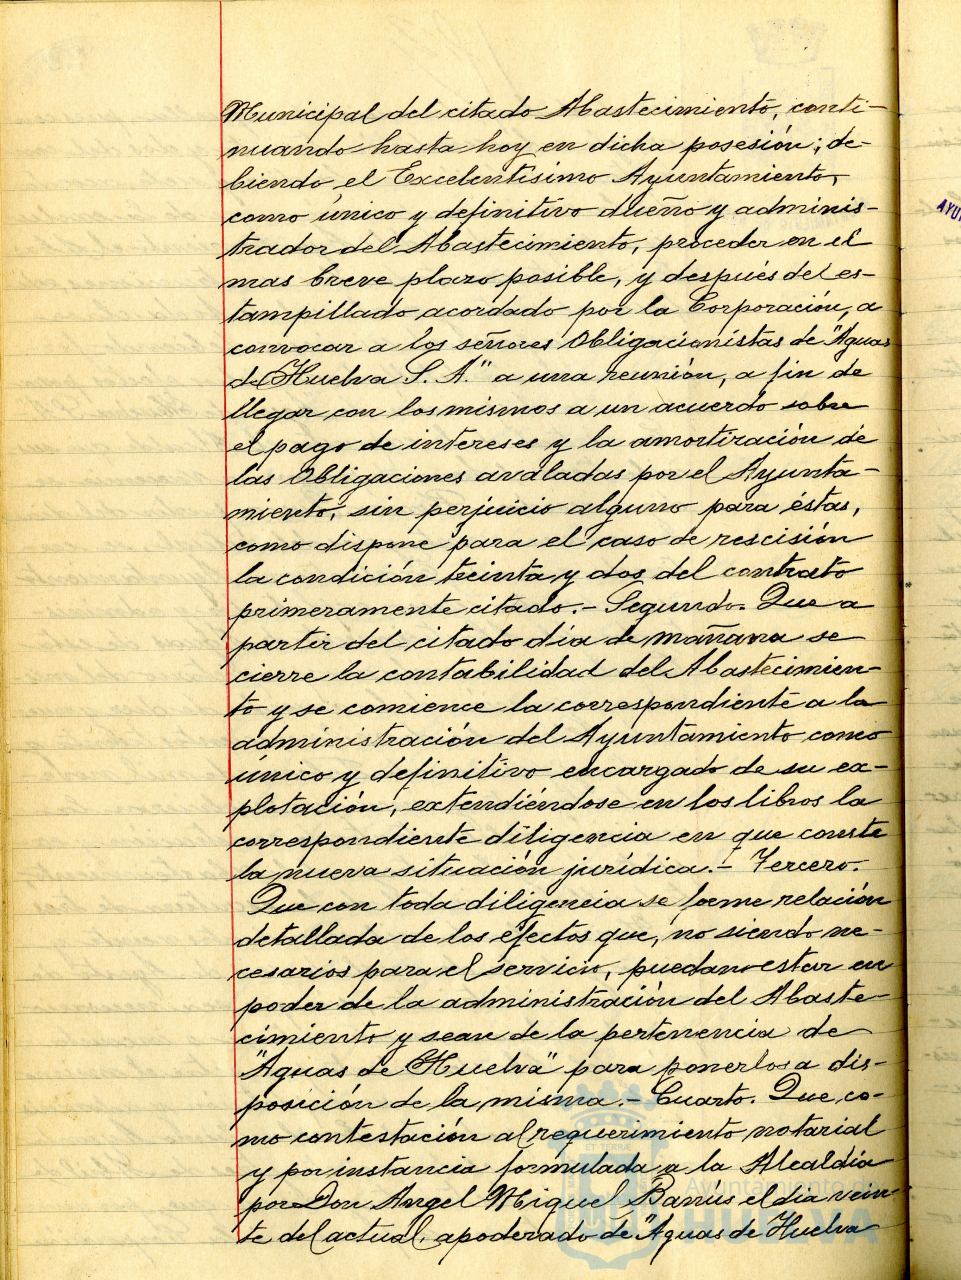 Municipal del citado Abastecimiento, conti-
nuando hasta hoy en dicha posesión; de-
biendo el Excelentísimo Ayuntamiento,
como único y definitivo dueño y adminis-
trador del Abastecimiento, proceder en el
mas breve plazo posible, y después del es-
tampillado acordado por la Corporación, a
convocar a los señores Obligacionistas de "Aguas
de Huelva S. A." a una reunión, a fin de
llegar con los mismos a un acuerdo sobre
el pago de intereses y la amortización de
las Obligaciones avaladas por el Ayunta-
miento, sin perjuicio alguno para éstas,
como dispone para el caso de rescisión
la condición treinta y dos del contrato
primeramente citado.- Segundo. Que a
partir del citado día de mañana se
cierre la contabilidad del Abastecimien-
to y se comience la correspondiente a la
administración del Ayuntamiento como
único y definitivo encargado de su ex-
plotación, extendiéndose en los libros la
correspondiente diligencia en que conste
la nueva situación jurídica.- Tercero.
Que con toda diligencia se forme relación
detallada de los efectos que, no siendo ne-
cesarios para el servicio, puedan estar en
poder de la administración del Abaste-
cimiento y sean de la pertenencia de
"Aguas de Huelva" para ponerlos a dis-
posición de la misma.- Cuarto. Que co-
mo contestación al requerimiento notarial
y por instancia formulada a la Alcaldía
por Don Angel Miguel Barrús el día vein-
te del actual, apoderado de "Aguas de Huelva
Ayuntamiento de
HUELVA